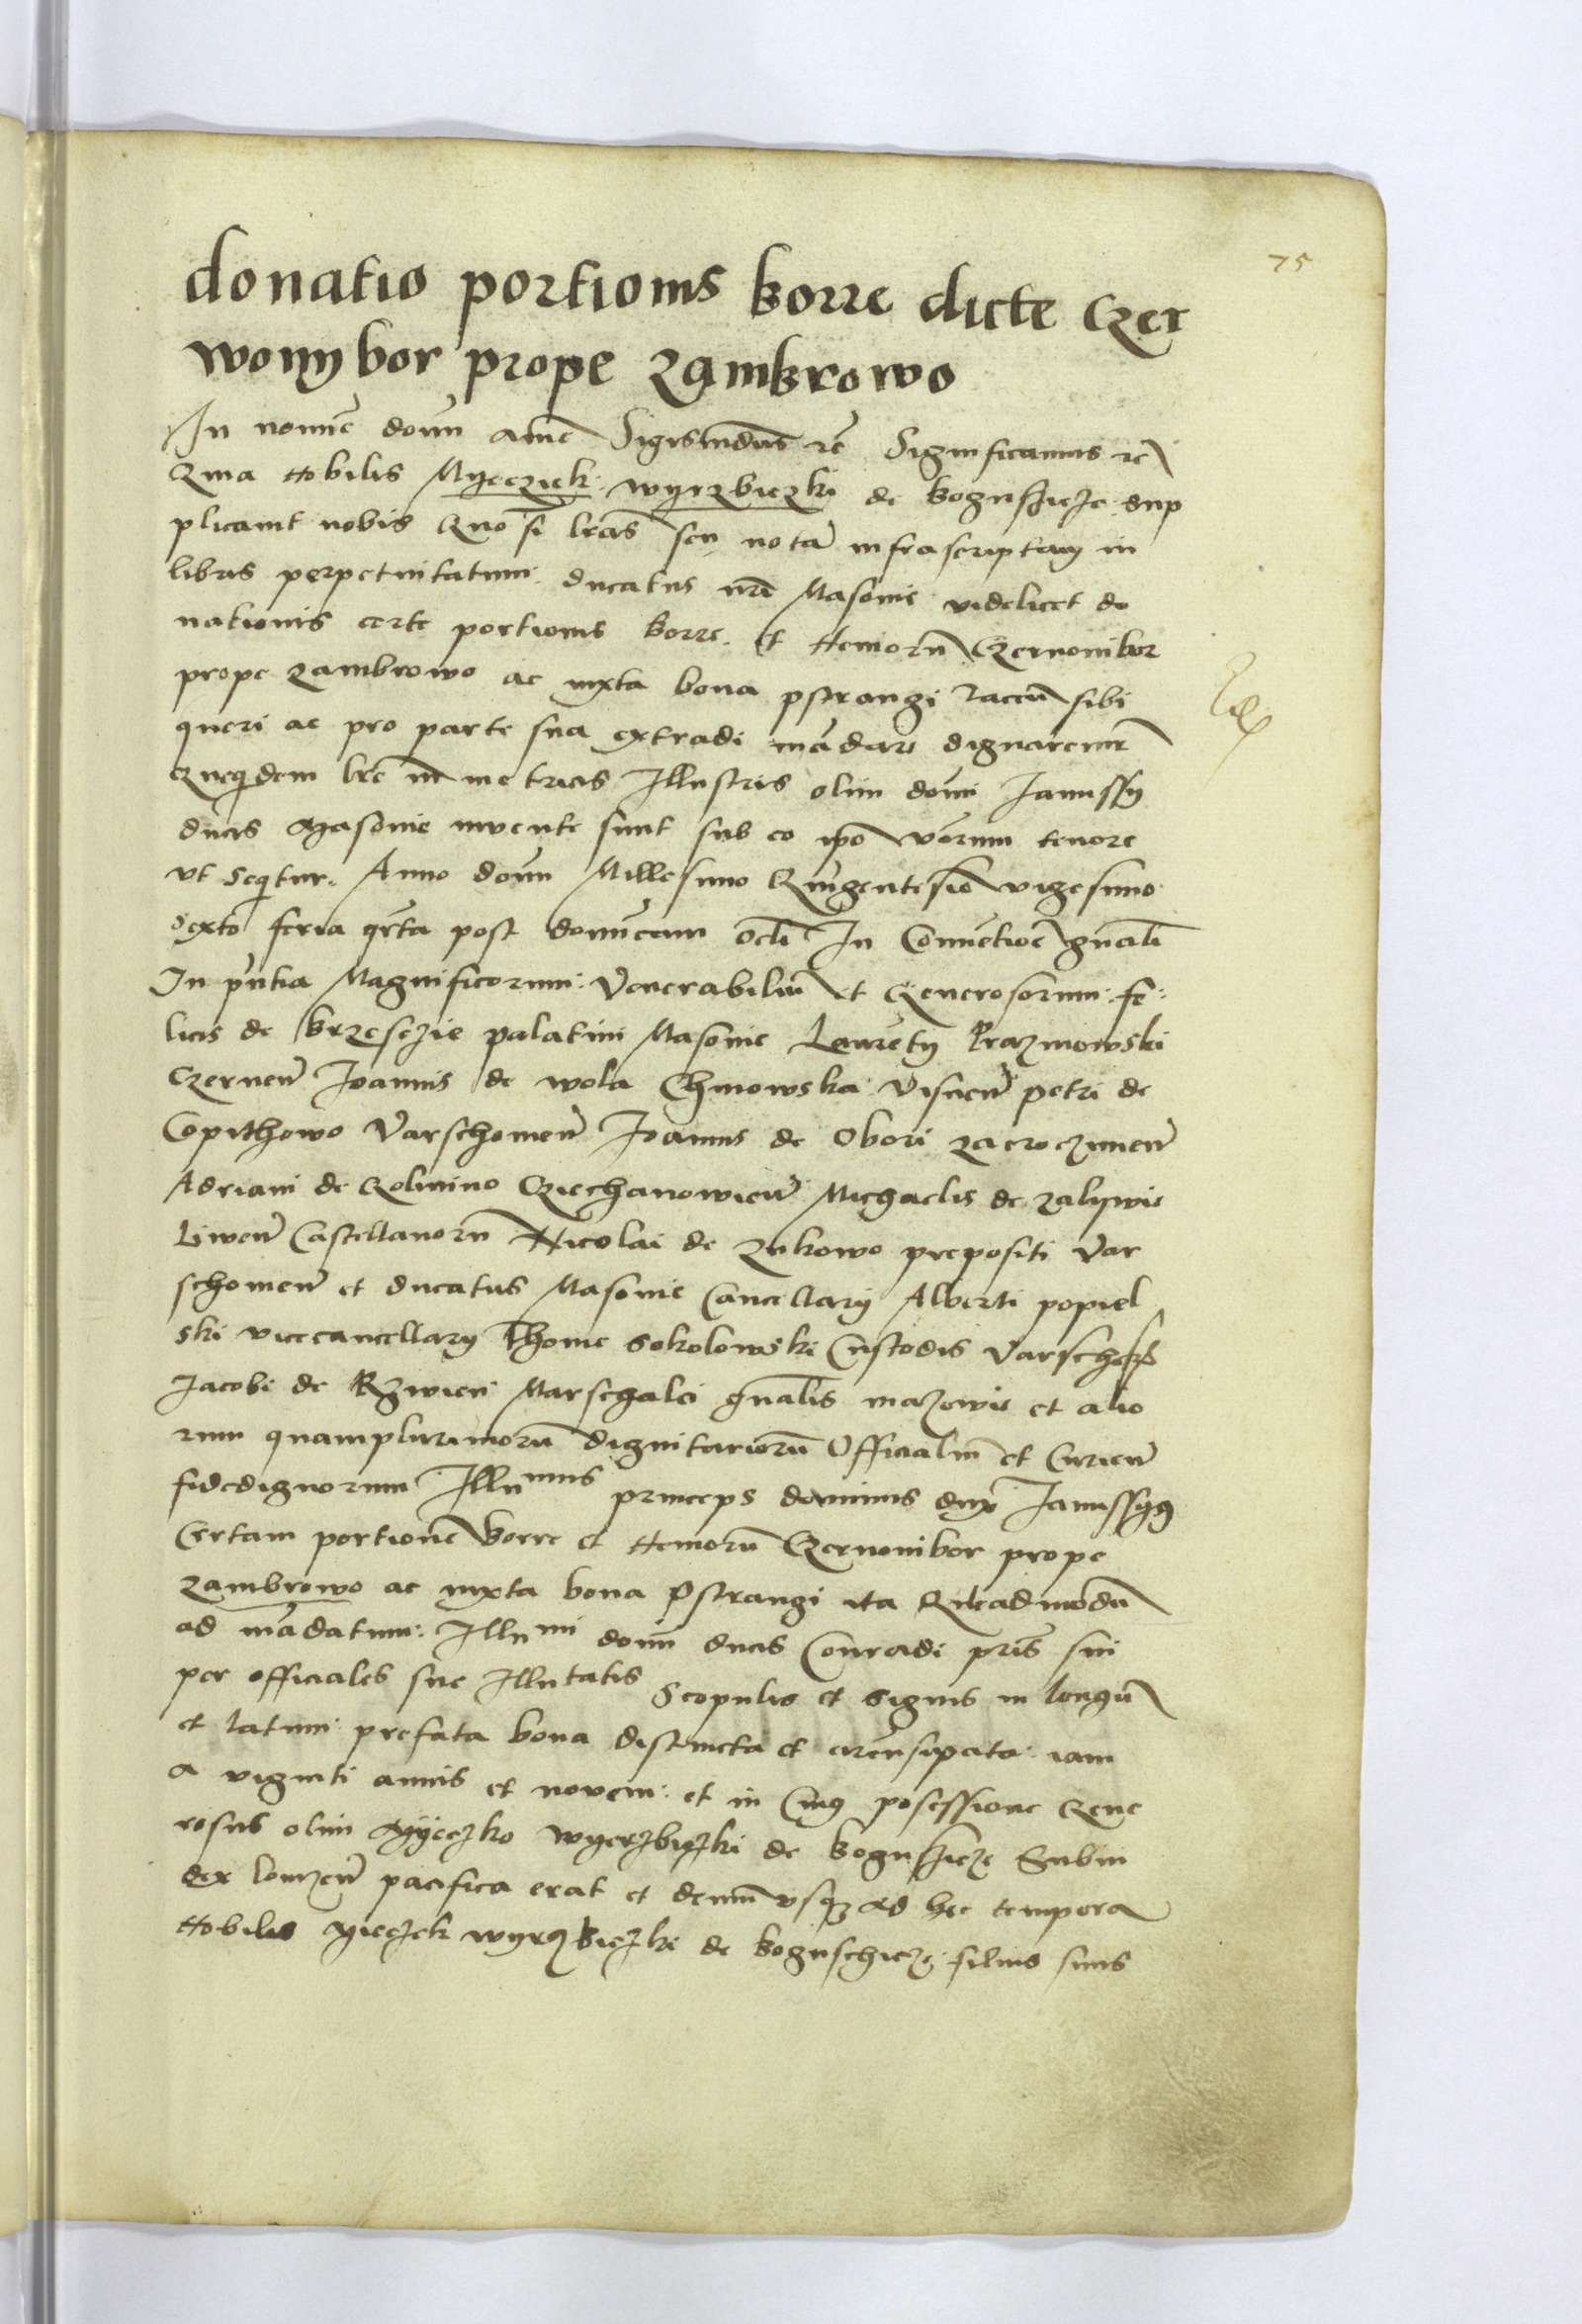 75
donatio portionis borre dicte Czer
wonybor prope Zambrowo
In nomīe domī amē Sigismūdus rē Significamus rē
Quia Nobilis Myecziek wyerzbiczki de boguschicze sup
plicavit nobis Quo si lrās seu notā infrascriptam in
libris perpetuitatum ducatus nrī Masovie videlicet do
nationis certe portionis borre et Nemorū Czervonibor
prope Zambrowo ac iuxta bona pstrangi sibi
queri ac pro parte sua extradi mādare dignaremr
Quequidem lrē in metricis Illustris olim domī Janussy
ducis Masovie invente sunt sub eo ipō verum tenore
ut sequitur. Anno domī Millesimo Quīgentesīo vigesimo
sexto feria qrta post domīcam ocli In Convētioē gn̄ali
In pn̄tia Magnificorum Venerabiliū et Generosorum fe
licis de brzesczie palatini Masovie Laurēty Prazmowski
Czernen̄ Joannis de wola Chinowska Visnen̄ petri de
Copithowo Varschovien̄ Joannis de Obori zacroczimen̄
Adriani de Golimino Cziechanowien̄ Michaelis de zaliwie
Liwen̄ Castellanorū Nicolai de zukowo prepositi Var
schovien̄ et ducatus Masovie Cancellary Alberti popiel
ski vicecancellary Thome Sokolowski Custodis Varschoṽ
Jacobi de Rzwien Marschalci gn̄alis mazowie et alio
rum quamplurimorū dignitariorū Officialiū et Curien̄
fidedignorum Illumus princeps dominus dux Janussyus
Certam portionē borre et Nemorū Czervonibor prope
Zambrowo ac iuxta bona Pstrangi ita Quēadmodū
ad mādatum Illumi domī ducis Conradi pris̄ sui
per officiales sue Illutatis Scopulis et signis in longū
et latum prefata bona distincta et circūsipata iam
a viginti annis et novem et in cuius posessione Gene
rosus olim Myeczko wyerzbiczki de boguschicze Subiu
dex lomzen̄ pacifica erat et demū usque ad hec tempora
Nobilis Mieczek wyerzbiczki de boguschicze filius suus